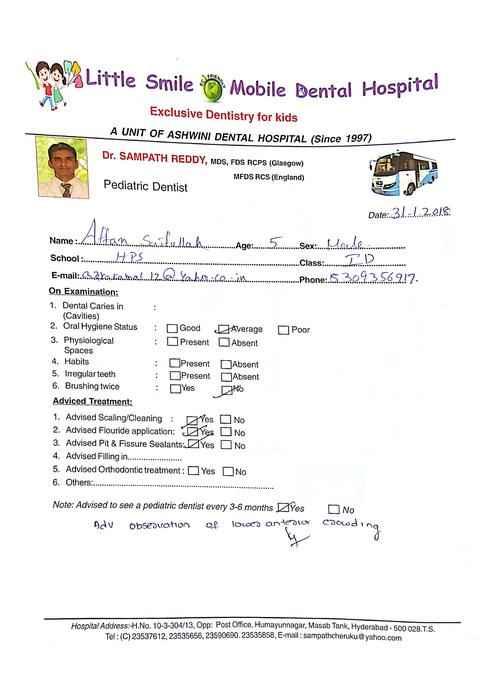 Little Smile Mobile Dental Hospital
Exclusive Dentistry for kids
A UNIT OF ASHWINI DENTAL HOSPITAL (Since 1997)
Dr. SAMPATH REDDY, MDS, FDS RCPS (Glasgow)
MFDS RCS (England)
Pediatric Dentist
Date: 31-1-2018
Name: Affan Saifullah Age: 5 Sex: Male
School: HPS Class: I D
E-mail: @Yahoo.co.in Phone:
On Examination:
1. Dental Caries in :
(Cavities)
2. Oral Hygiene Status : Good Average Poor
3. Physiological : Present Absent
Spaces
4. Habits : Present Absent
5. Irregular teeth : Present Absent
6. Brushing twice : Yes No
Adviced Treatment:
1. Advised Scaling/Cleaning : Yes No
2. Advised Flouride application: Yes No
3. Advised Pit & Fissure Sealants: Yes No
4. Advised Filling in
5. Advised Orthodontic treatment : Yes No
6. Others:
Note: Advised to see a pediatric dentist every 3-6 months Yes No
Adv observation of lower anterior crowding
Hospital Address:-H.No. 10-3-304/13, Opp: Post Office, Humayunnagar, Masab Tank, Hyderabad - 500 028.T.S.
Tel : (C) 23537612, 23535656, 23590690. 23535858, E-mail : sampathcheruku@yahoo.com